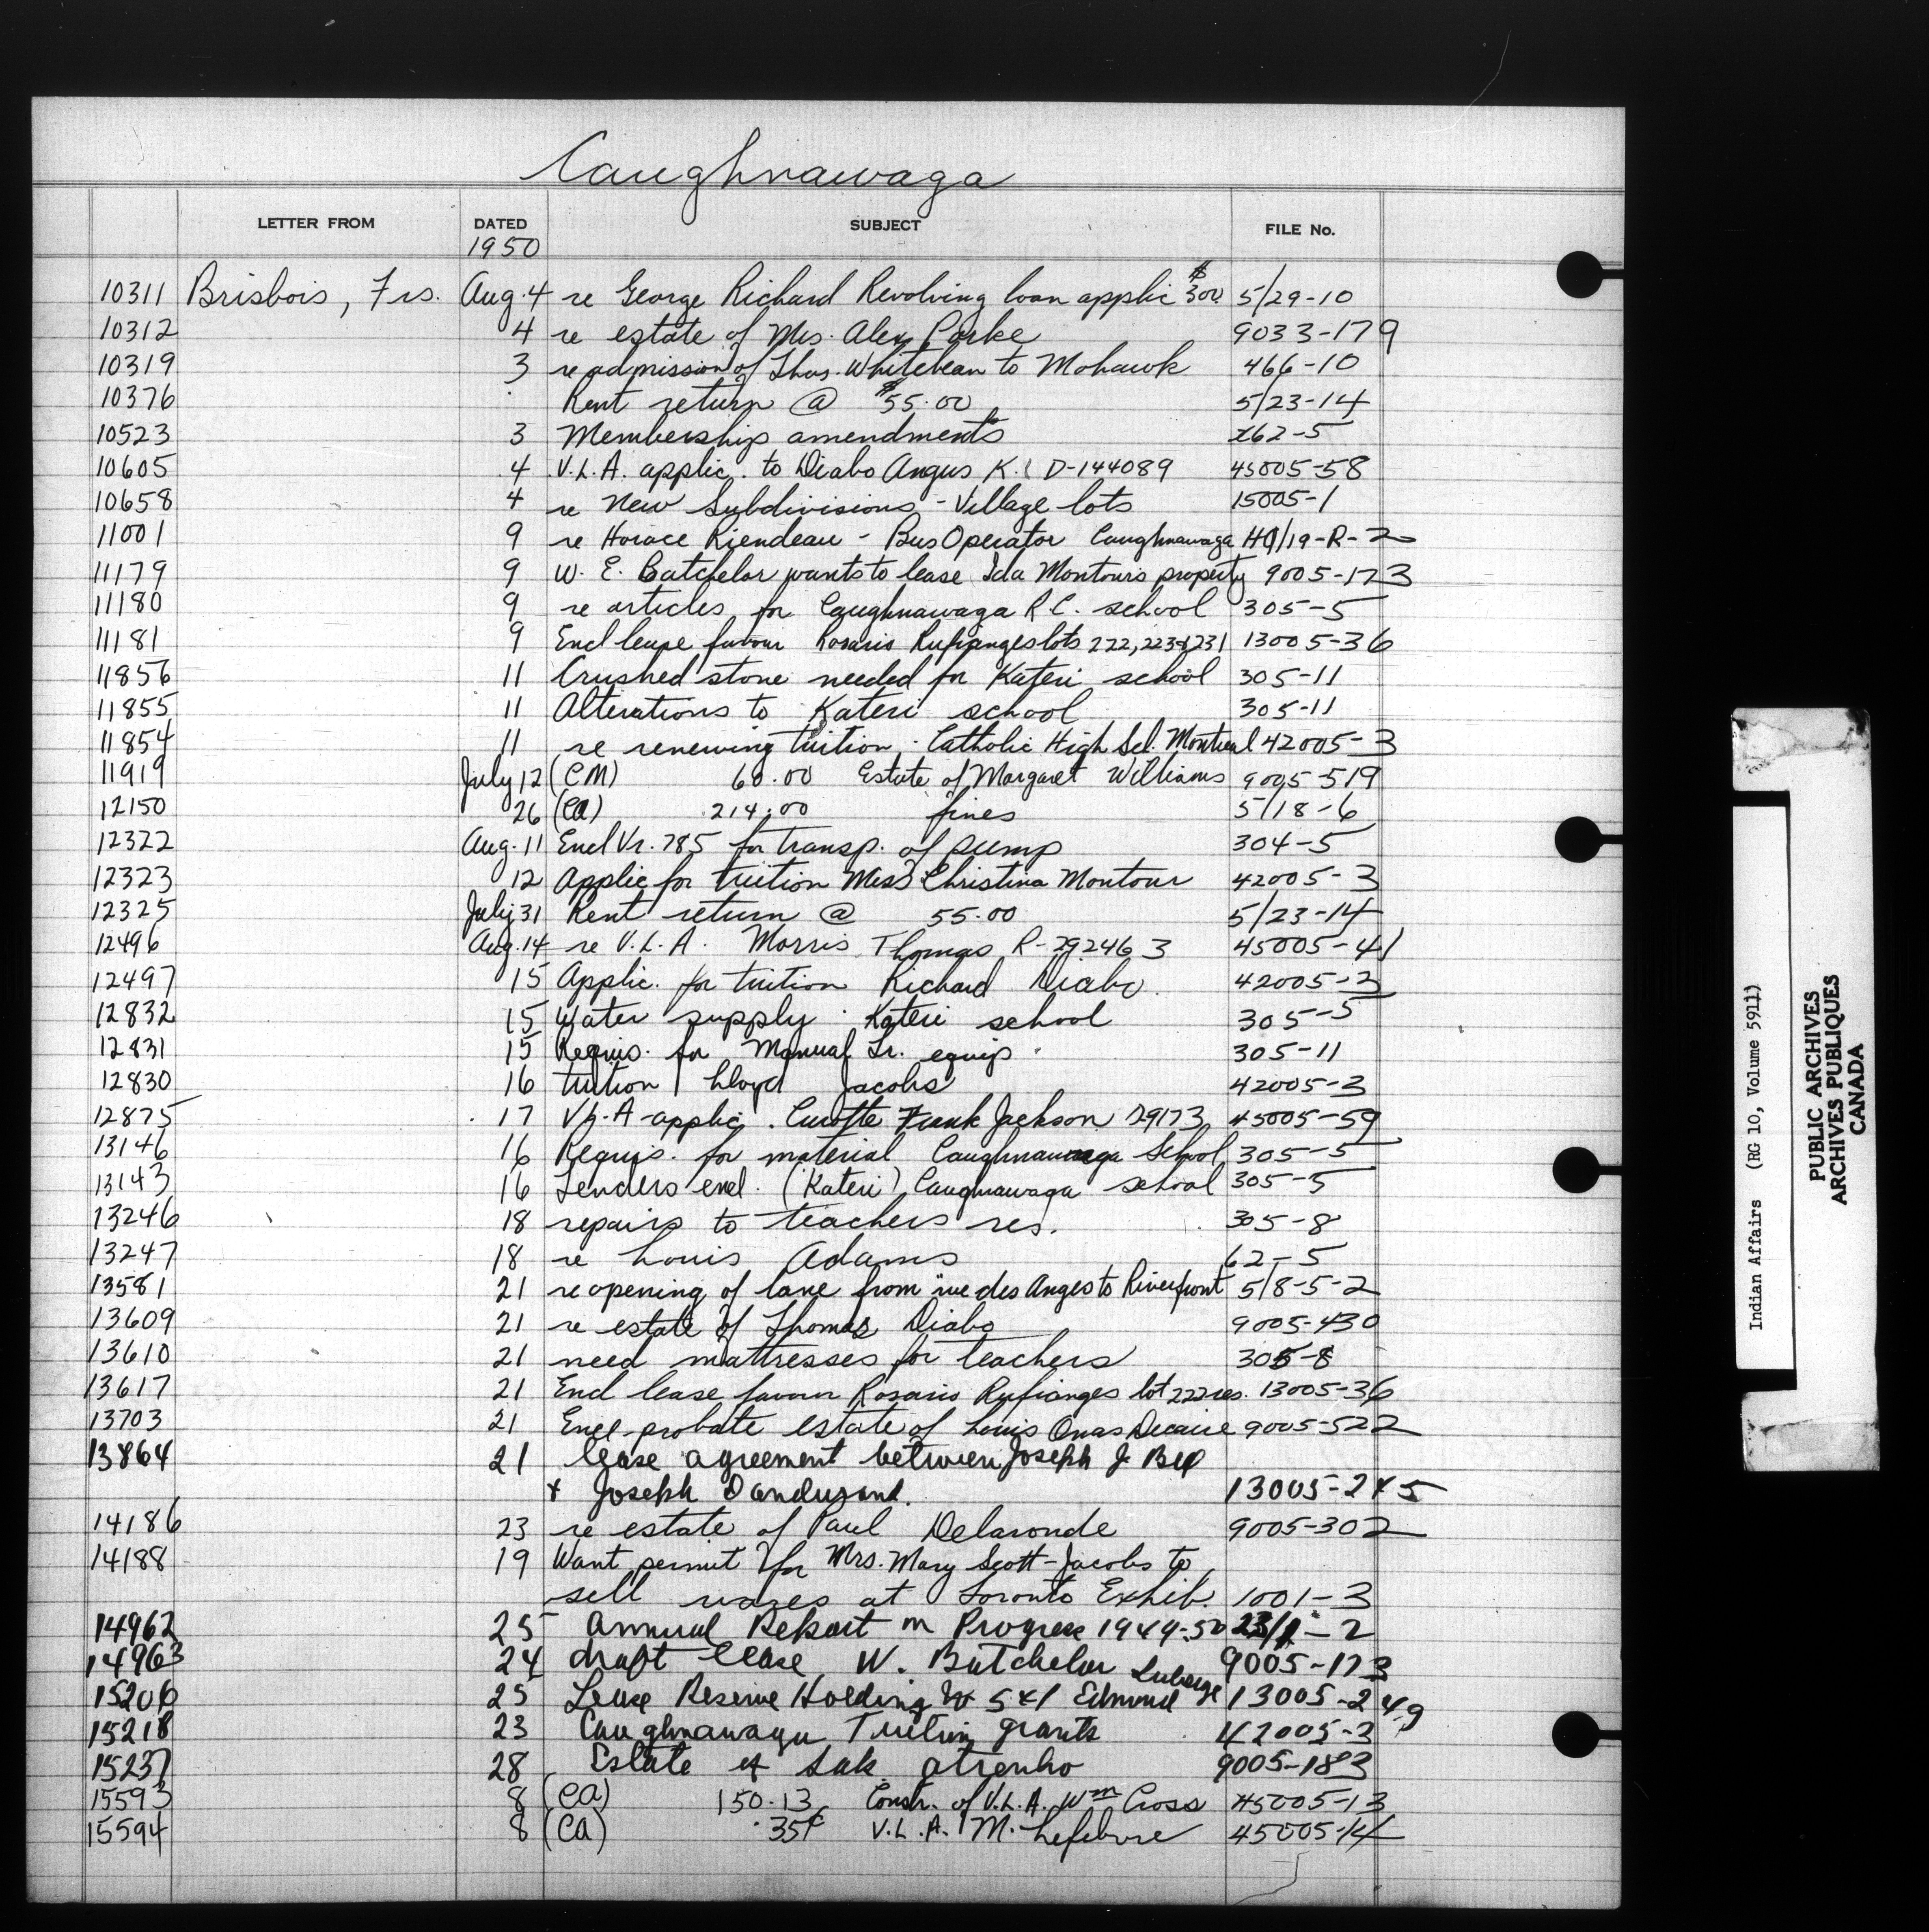 Caughnawaga
LETTER FROM DATED SUBJECT FILE No.
1950
10311 Brisbois, Frs. Aug. 4 re George Richard Revolving loan applic $300. 5/29-10
10312 4 re estate of Mrs. Alex Parke 9033-179
10319 3 re admission of Thos. Whitebean to Mohawk 466-10
10376 Rent return @ $55.00 5/23-14
10523 3 Membership amendments 62-5
10605 4 V.L.A. applic. to Diabo Angus K. D-144089 45005-58
10658 4 re New Subdivisions - Village lots 15005-1
11001 9 re Horace Riendeau - Bus Operator Caughnawaga HQ/19-R-2
11179 9 W. E. Batchelor wants to lease Ida Montour's property 9005-173
11180 9 re articles for Caughnawaga R.C. school 305-5
11181 9 Encl lease favour Rosario Rufianges lots 222, 223 & 231 13005-36
11856 11 Crushed stone needed for Kateri school 305-11
11855 11 Alterations to Kateri school 305-11
11854 11 re renewing tuition - Catholic High Scl. Montreal 42005-3
11919 July 12 (CM) 60.00 Estate of Margaret Williams 9005-519
12150 26 (CA) 214.00 fines 5/18-6
12322 Aug. 11 Encl Vr. 785 for transp. of pump 304-5
12323 12 Applic for tuition Miss Christina Montour 42005-3
12325 July 31 Rent return @ 55.00 5/23-14
12496 Aug. 14 re V.L.A. Morris Thomas R-292463 45005-41
12497 15 Applic. for tuition Richard Diabo. 42005-3
12832 15 Water supply - Kateri school 305-5
12831 15 Requis. for Manual Tr. equip. 305-11
12830 16 tuition Lloyd Jacobs 42005-3
12875 17 V.L.A-applic. Curotte Frank Jackson D9173 45005-59
13146 16 Requis. for material Caughnawaga School 305-5
13143 16 Tenders encl. (Kateri) Caughnawaga school 305-5
13246 18 repairs to teachers res. 305-8
13247 18 re Louis Adams 62-5
13581 21 re opening of lane from rue des Anges to Riverfront 5/8-5-2
13609 21 re estate of Thomas Diabo 9005-430
13610 21 need mattresses for teachers 305-8
13617 21 Encl lease favour Rosario Rufianges lot 222 res. 13005-36
13703 21 Encl-probate estate of Louis Onas Decaire 9005-522
13864 21 lease agreement between Joseph J. Bell
+ Joseph Dandurand. 13005-245
14186 23 re estate of Paul Delaronde 9005-302
14188 19 Want permit for Mrs. Mary Scott-Jacobs to
sell wares at Toronto Exhib. 1001-3
14962 25 Annual Report on Progress 1949-50 23/1-2
14963 24 draft lease W. Batchelor 9005-173
15206 25 Lease Reserve Holding 541 Edmund 13005-249
15218 23 Caughnawaga Tuition grants 42005-3
15237 28 Estate of Sak 9005-183
15593 8 (CA) 150.13 Constr. of V.L.A. Wm Cross 45005-13
15594 8 (CA) .35¢ V.L.A. M. Lefebvre 45005-14
Indian Affairs (RG 10, Volume 5911)
PUBLIC ARCHIVES
ARCHIVES PUBLIQUES
CANADA